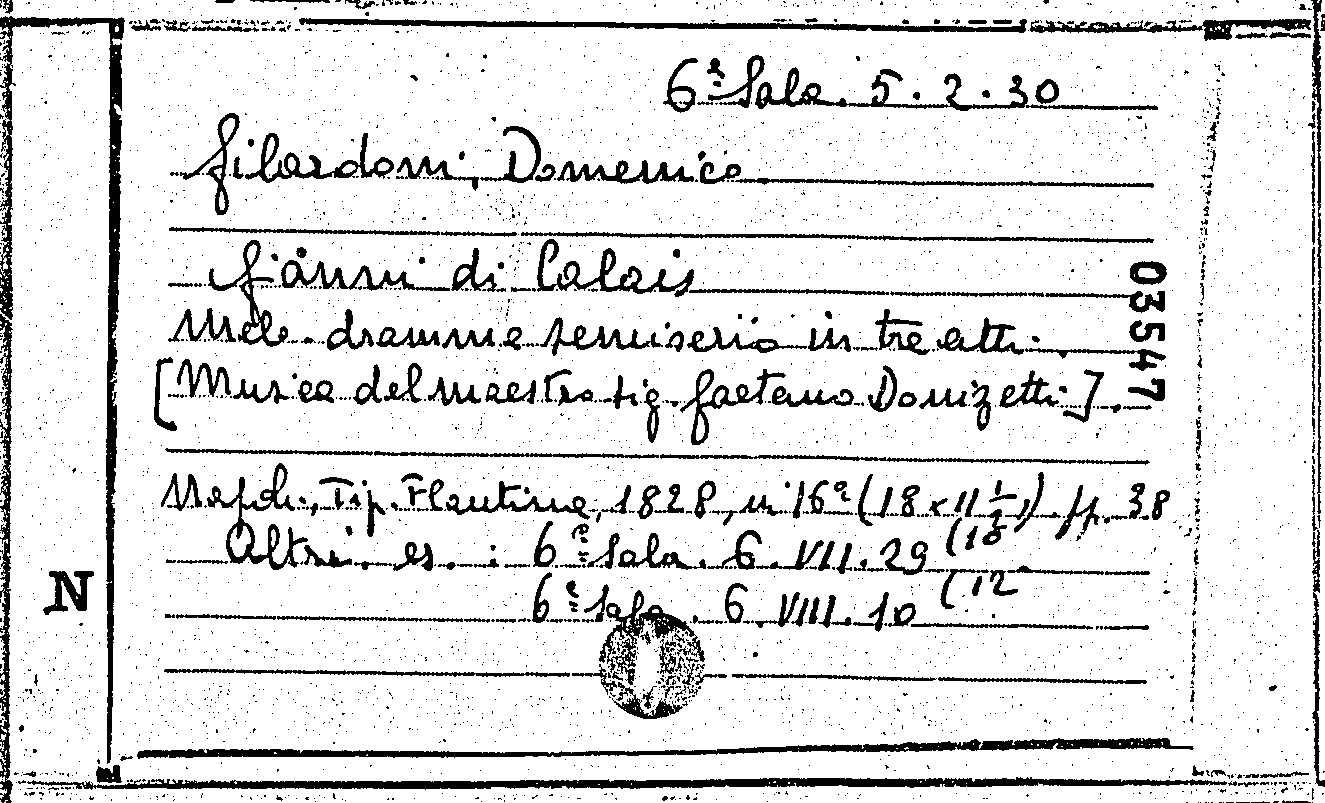 6ª Sala. 5. 2. 30
Gilardoni, Domenico.
Gianni di Calais
Melo-dramma semiserio in tre atti.
[Musica del maestro sig. Gaetano Donizetti].
Napoli, Tip. Flautina, 1828, in 16º (18 x 11 ½). pp. 38
Altri es.: 6ª Sala. 6. VII. 29
6ª Sala. 6. VIII. 10 (12
03547
N